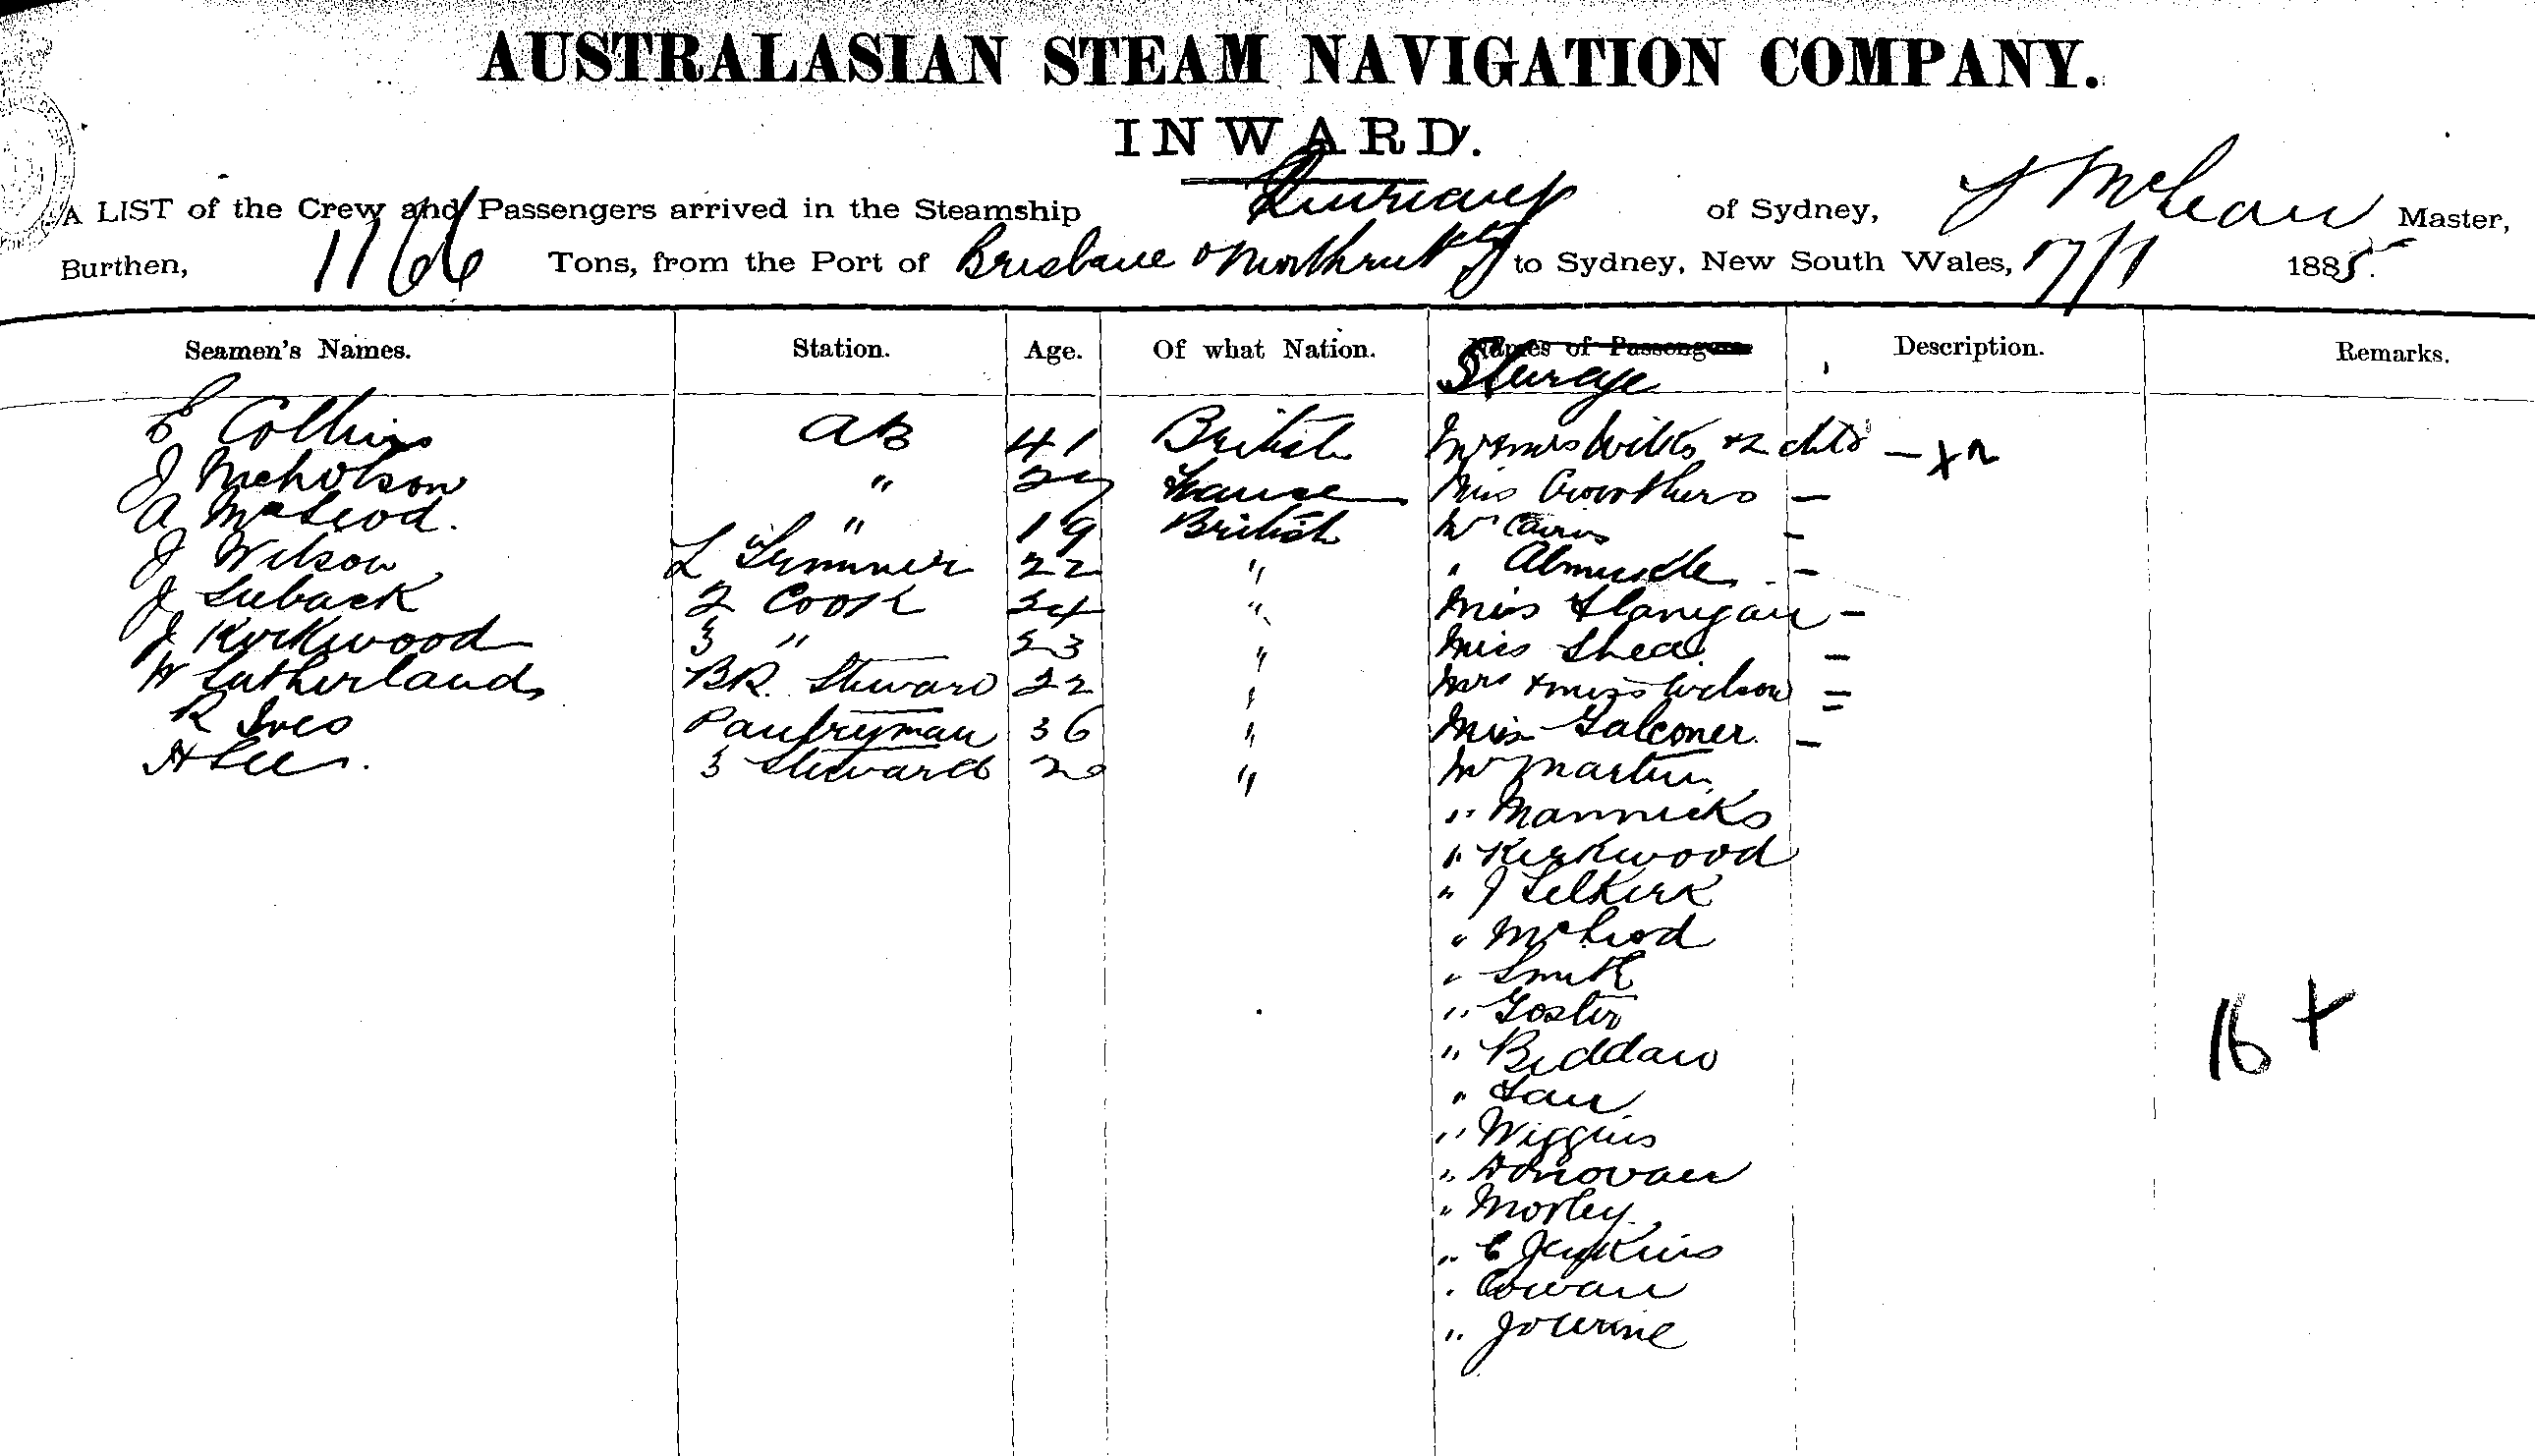 AUSTRALASIAN STEAM NAVIGATION COMPANY.
INWARD.
A LIST of the Crew and Passengers arrived in the Steamship of Sydney, J McLean Master,
Burthen, 1166 Tons, from the Port of Brisbane & Northern to Sydney, New South Wales, 17/1 1885.
Seamen's Names. Station. Age. Of what Nation. Names of Passengers Description. Remarks.
Steerage
E Collins AB 41 British Mr & Mrs Wilks & 2 chld — x2
J Nicholson " 29 France Miss Crowthers —
A McLeod. " 19 British Mr Cairns —
J Wilson L Trimmer 22 " " —
J Luback 2 Cook 24 " Miss Flanigan —
J Kirkwood 3 " 23 " Miss Shea. —
W Sutherland BR. Steward 22 " Mrs & Miss Wilson =
R Ives Pantryman 36 " Miss Falconer. —
H Lee. 3 Steward 20 " Mr Martin
" Mannicks
" Kirkwood
" J Selkirk
" McLeod
" Smith
" Foster
" Beddaw
" Law
" Wiggins
" Donovan
" Morley
" C Jenkins
" Cowan
"
16 +